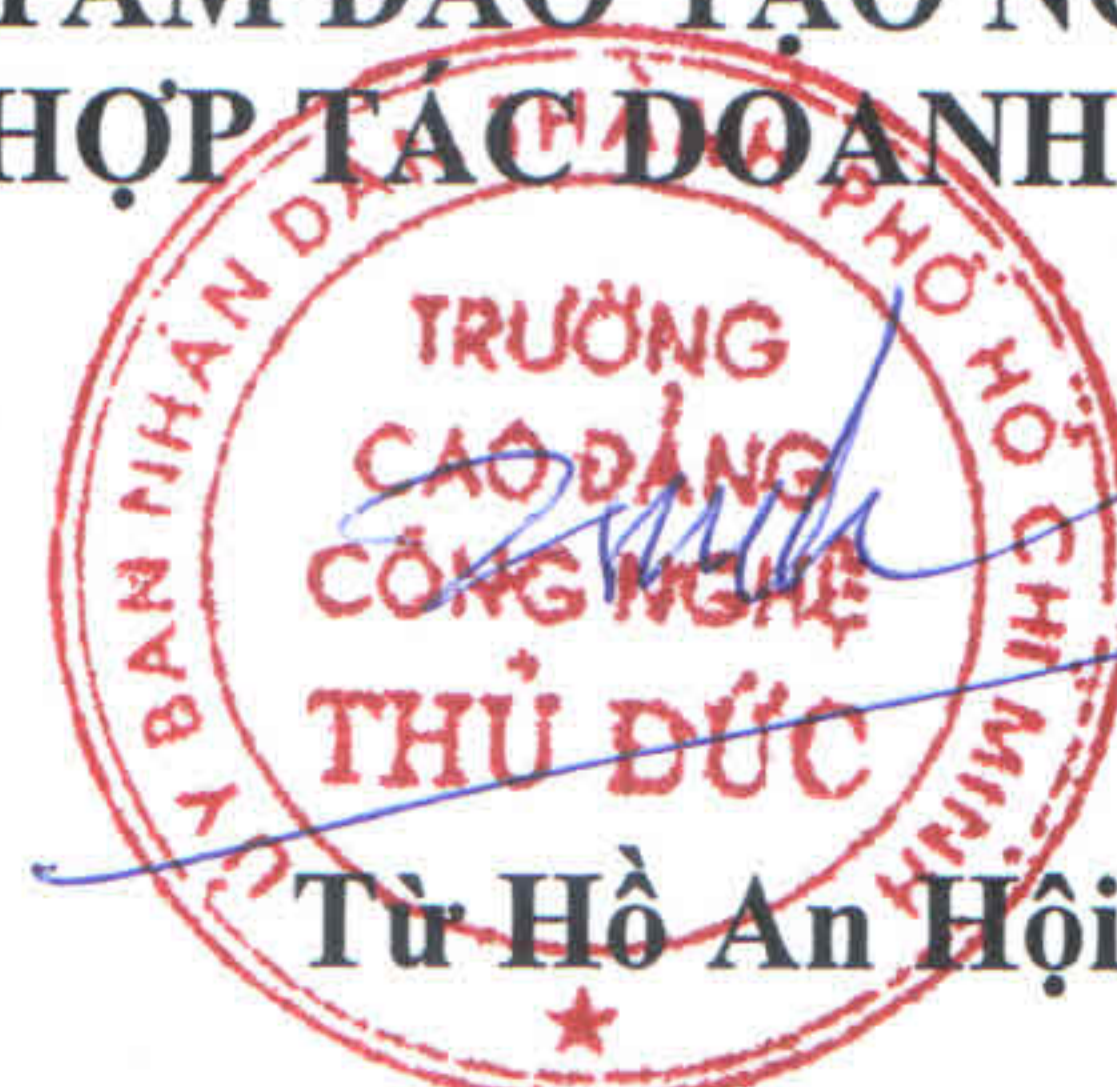 TÂM ĐÀO TẠO
HỢP TÁC DOANH
ỦY BAN NHÂN DÂN THÀNH PHỐ HỒ CHÍ MINH
TRƯỜNG
CAO ĐẲNG
CÔNG NGHỆ
THỦ ĐỨC
Từ Hồ An Hội